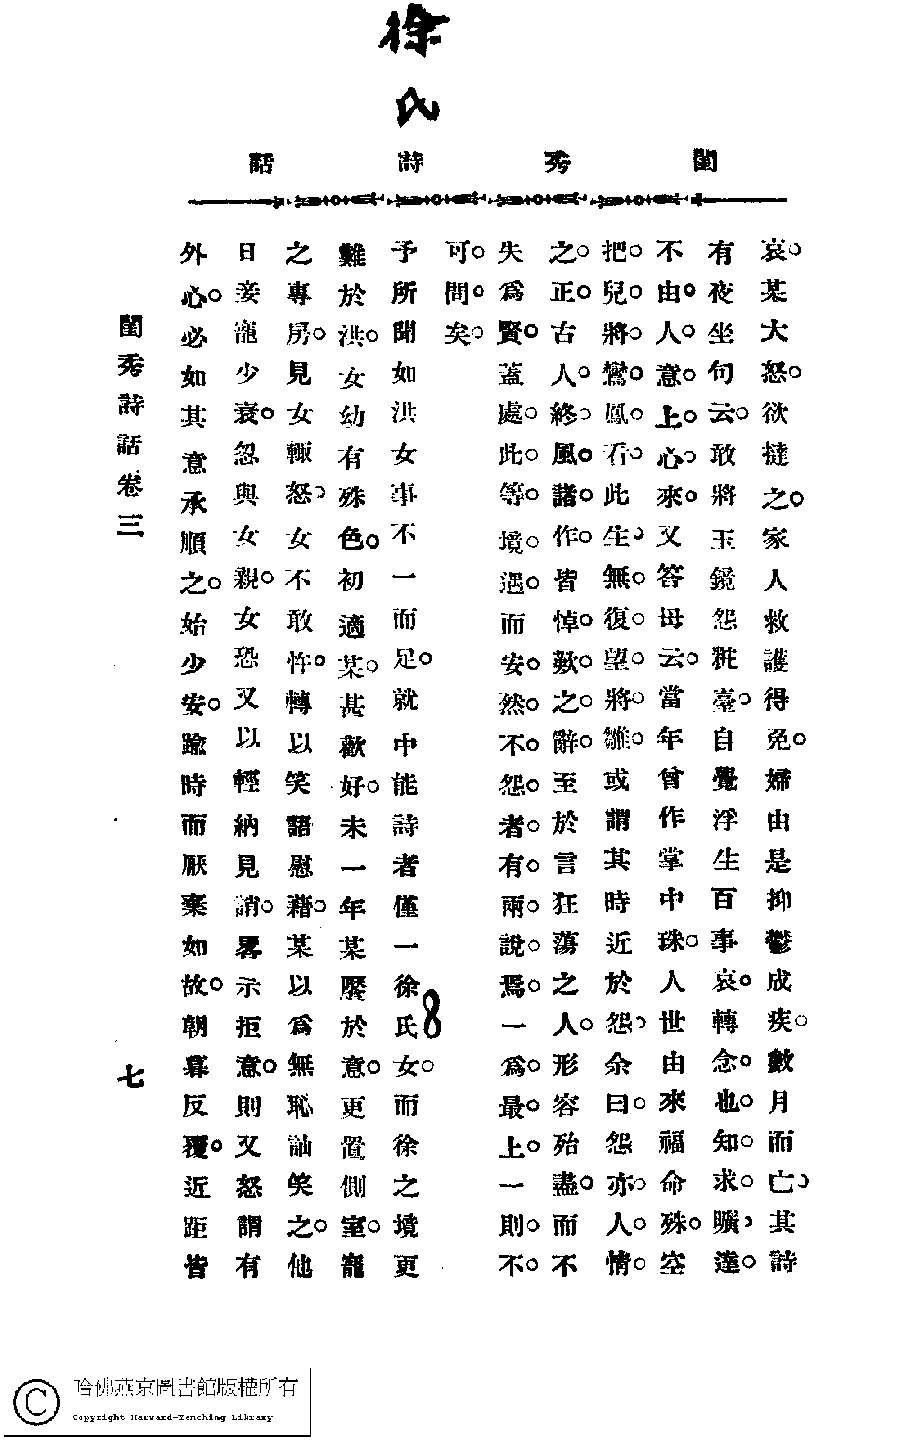 徐氏
閨秀詩話
哀。某大怒。欲撻之。家人救護得免。婦由是抑鬱成疾。數月而亡。其詩
有夜坐句云。敢將玉鏡怨粧臺。自覺浮生百事哀。轉念也知求曠達。
不由人意上心來。又答母云。當年曾作掌中珠。人世由來福命殊。空
把兒將鸞鳳看。此生無復望將雛。或謂其時近於怨。余曰怨亦人情
之正。古人終風諸作。皆悼歎之辭。至於言狂蕩之人。形容殆盡。而不
失為賢。蓋處此等境遇。而安然不怨者有兩說焉。一為最上。一則不
可問矣。
予所聞如洪女事不一而足。就中能詩者僅一徐氏女。而徐之境更
難於洪。女幼有殊色。初適某。甚歡好。未一年某厭於意。更置側室。寵
之專房。見女輒怒。女不敢忤。轉以笑語慰藉。某以為無恥訕笑之。他
日妾寵少衰。忽與女親。女恐又以輕納見誚。畧示拒意。則又怒謂有
外心。必如其意承順之。始少安。踰時而厭棄如故。朝暮反覆。近距皆
閨秀詩話卷三
七
8
哈佛燕京圖書館版權所有
Copyright Harvard-Yenching Library